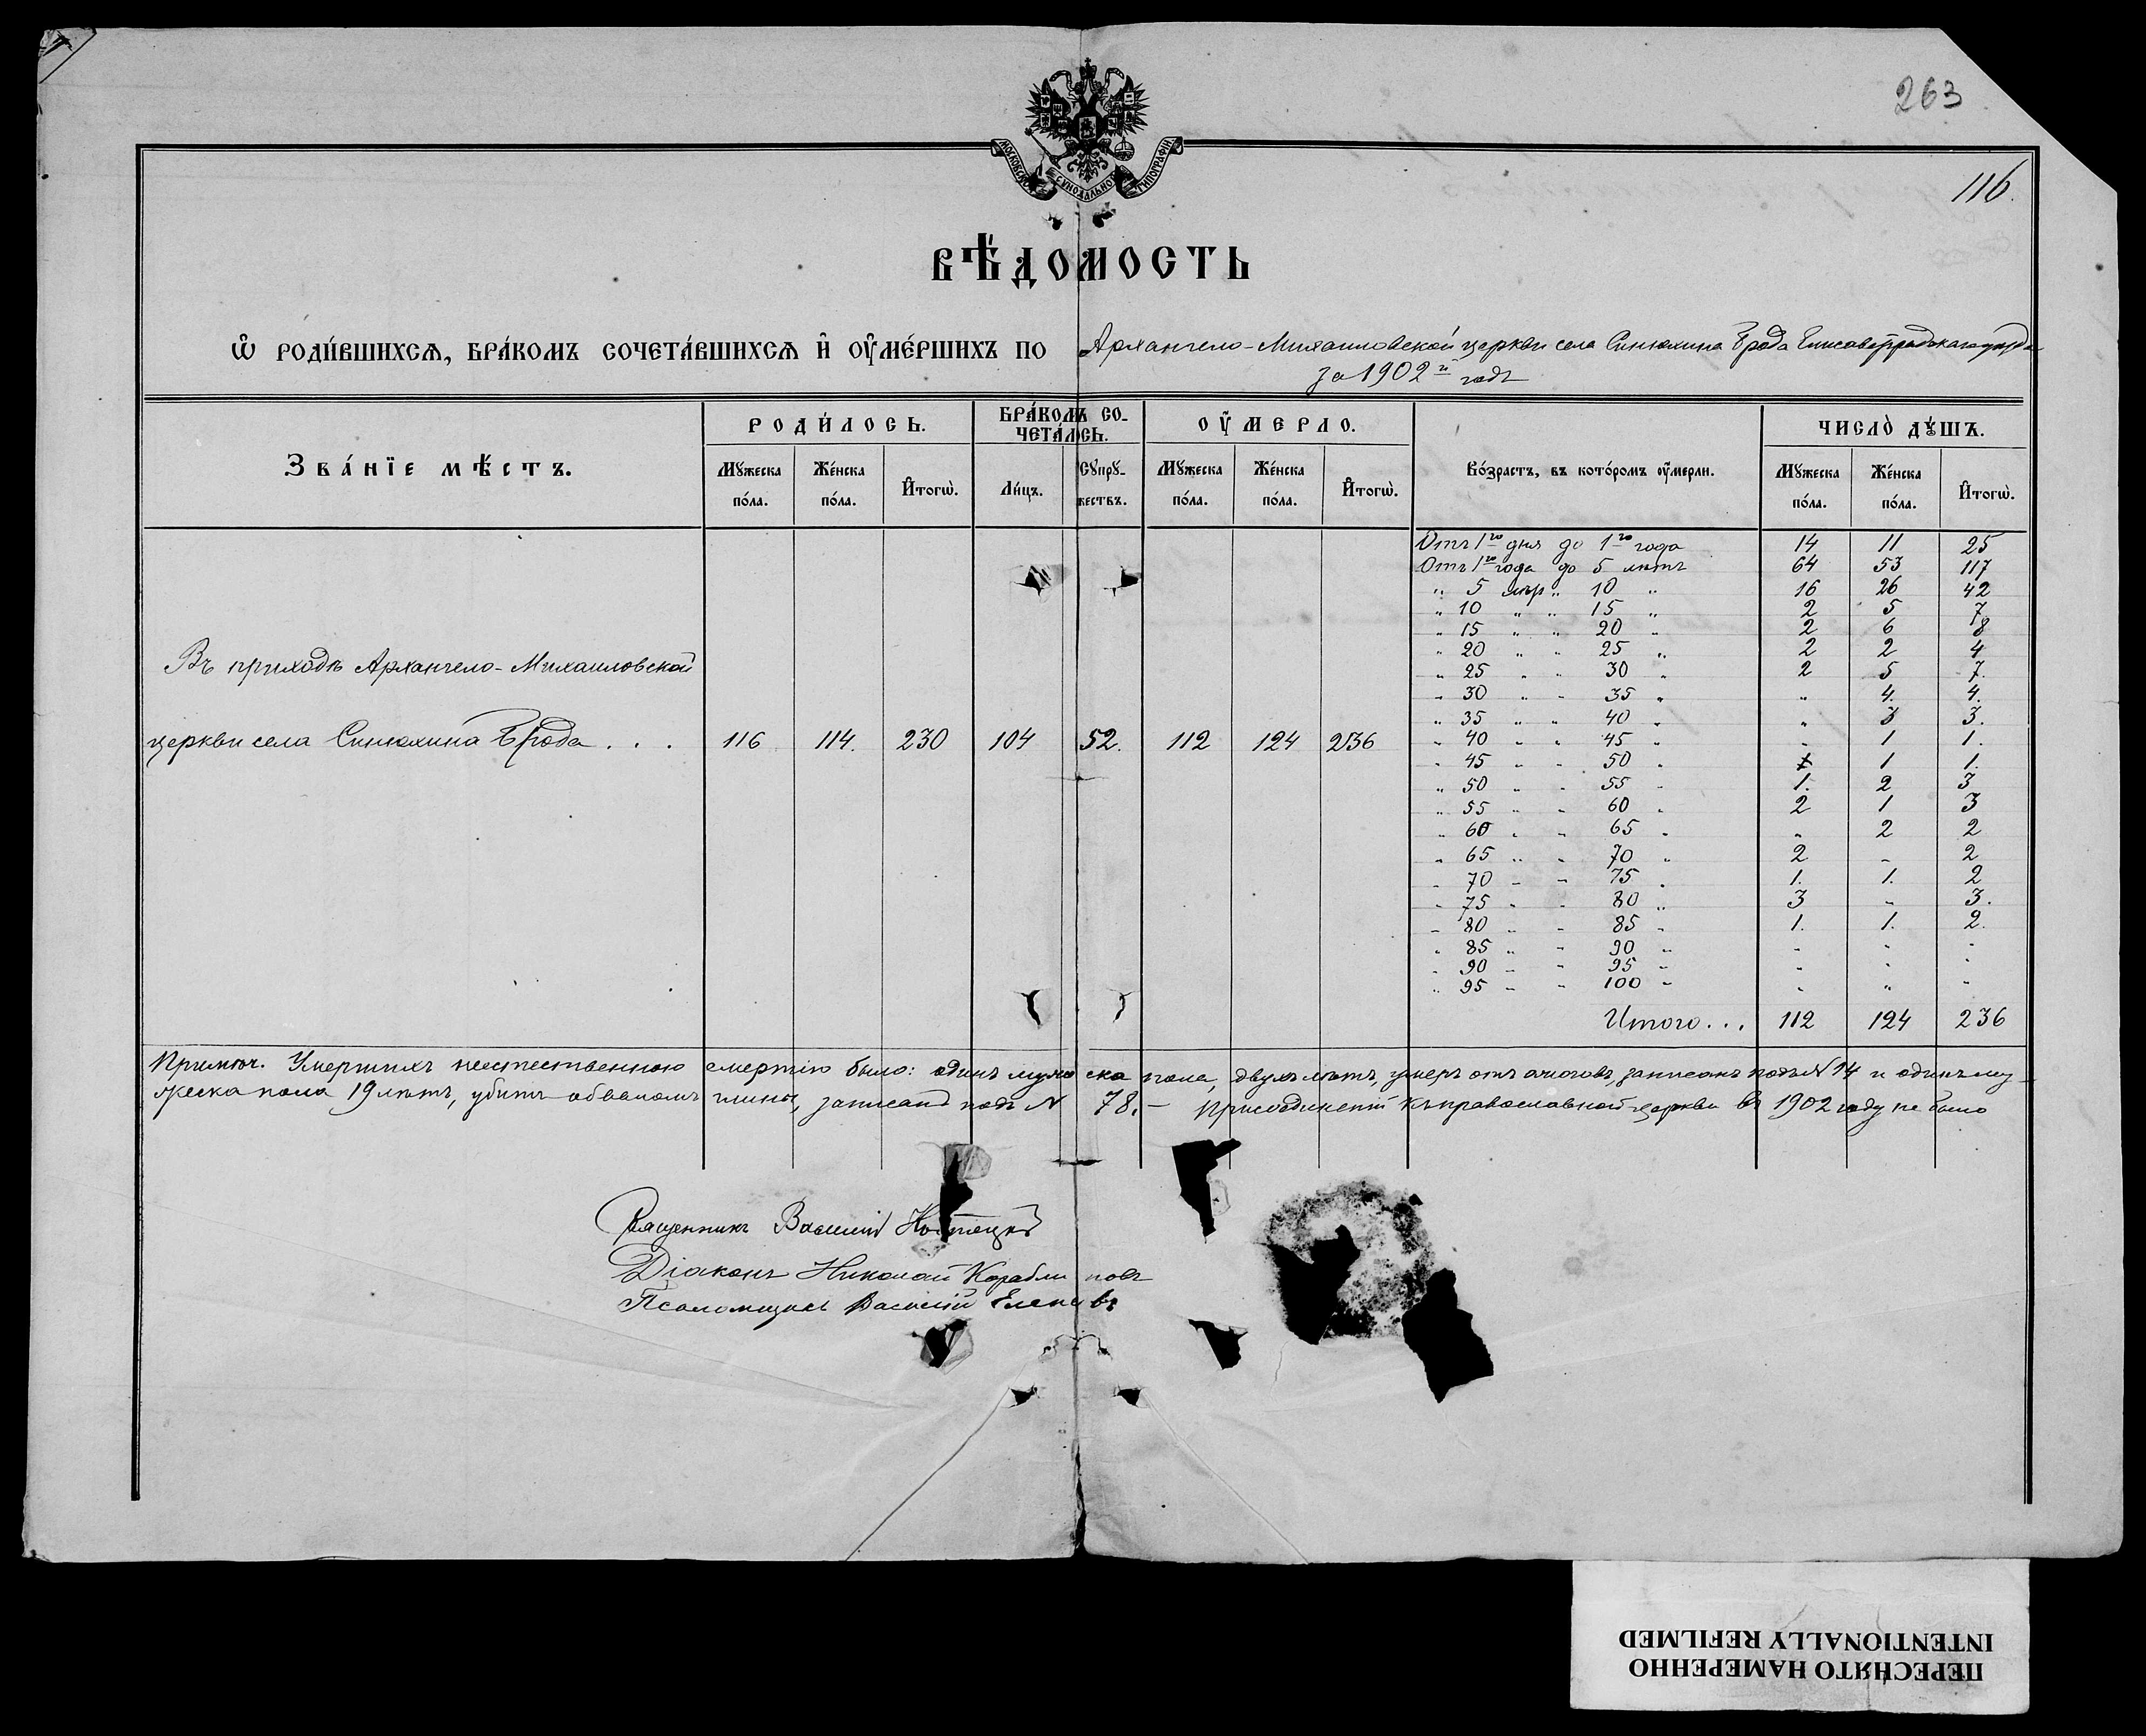 263
116.
МОСКОВСКОЙ СУНОДАЛЬНОЙ ТИПОГРАФІИ
ВѢ́ДОМОСТЬ
Ѡ҆ РОДИ́ВШИХСѦ, БРА́КОМЪ СОЧЕТА́ВШИХСѦ И҆ ОУ҆МЕ́РШИХЪ ПО Архангело-Михаиловской церкви села Синюхина Брода Елисаветградскаго уѣзда
за 1902й годъ
Зва́нїе мѣ́стъ.
РОДИ́ЛОСЬ.
БРА́КОМЪ СО-
ЧЕТА́ЛОСЬ.
ОУ҆́МЕРЛО.
Во́зрастъ, въ кото́ромъ оу҆́мерли.
ЧИСЛО̀ ДꙊ́ШЪ.
Мꙋ́жеска по́ла.
Же́нска по́ла.
И҆тогѡ̀.
Ли́цъ.
Сꙋпрꙋ́-
жествъ.
Мꙋ́жеска по́ла.
Же́нска по́ла.
И҆тогѡ̀.
Мꙋ́жеска по́ла.
Же́нска по́ла.
И҆тогѡ̀.
Въ приходѣ Архангело-Михаиловской
церкви села Синюхина Брода . . . 116 114. 230 104 52. 112 124 236
Отъ 1го дня до 1го года 14 11 25
Отъ 1го года до 5 лѣтъ 64 53 117
" 5 " 10 " 16 26 42
" 10 " " 15 " 2 5 7
" 15 " " 20 " 2 6 8
" 20 " " 25 " 2 2 4
" 25 " " 30 " 2 5 7.
" 30 " " 35 " " 4. 4.
" 35 " " 40 " " 3 3.
" 40 " " 45 " " 1 1.
" 45 " " 50 " 1 1.
" 50 " " 55 " 1. 2 3
" 55 " " 60 " 2 1 3
" 60 " " 65 " " 2 2
" 65 " " 70 " 2 " 2
" 70 " " 75 " 1. 1. 2
" 75 " " 80 " 3 " 3.
" 80 " " 85 " 1. 1. 2.
" 85 " " 90 " " " "
" 90 " " 95 " " " "
" 95 " " 100 " " " "
Итого... 112 124 236
Примѣч. Умершихъ неестественною смертію было: одинъ мужеска пола, двухъ лѣтъ, умеръ отъ ожоговъ, записанъ подъ № 14 и одинъ му-
жеска пола 19 лѣтъ, убитъ обваломъ глины, записанъ подъ № 78. – Присоединеній къ православной церкви въ 1902 году не было
Священникъ Василій
Діаконъ Николай
Псаломщикъ Василій
ПЕРЕСНЯТО НАМЕРЕННО
INTENTIONALLY REFILMED